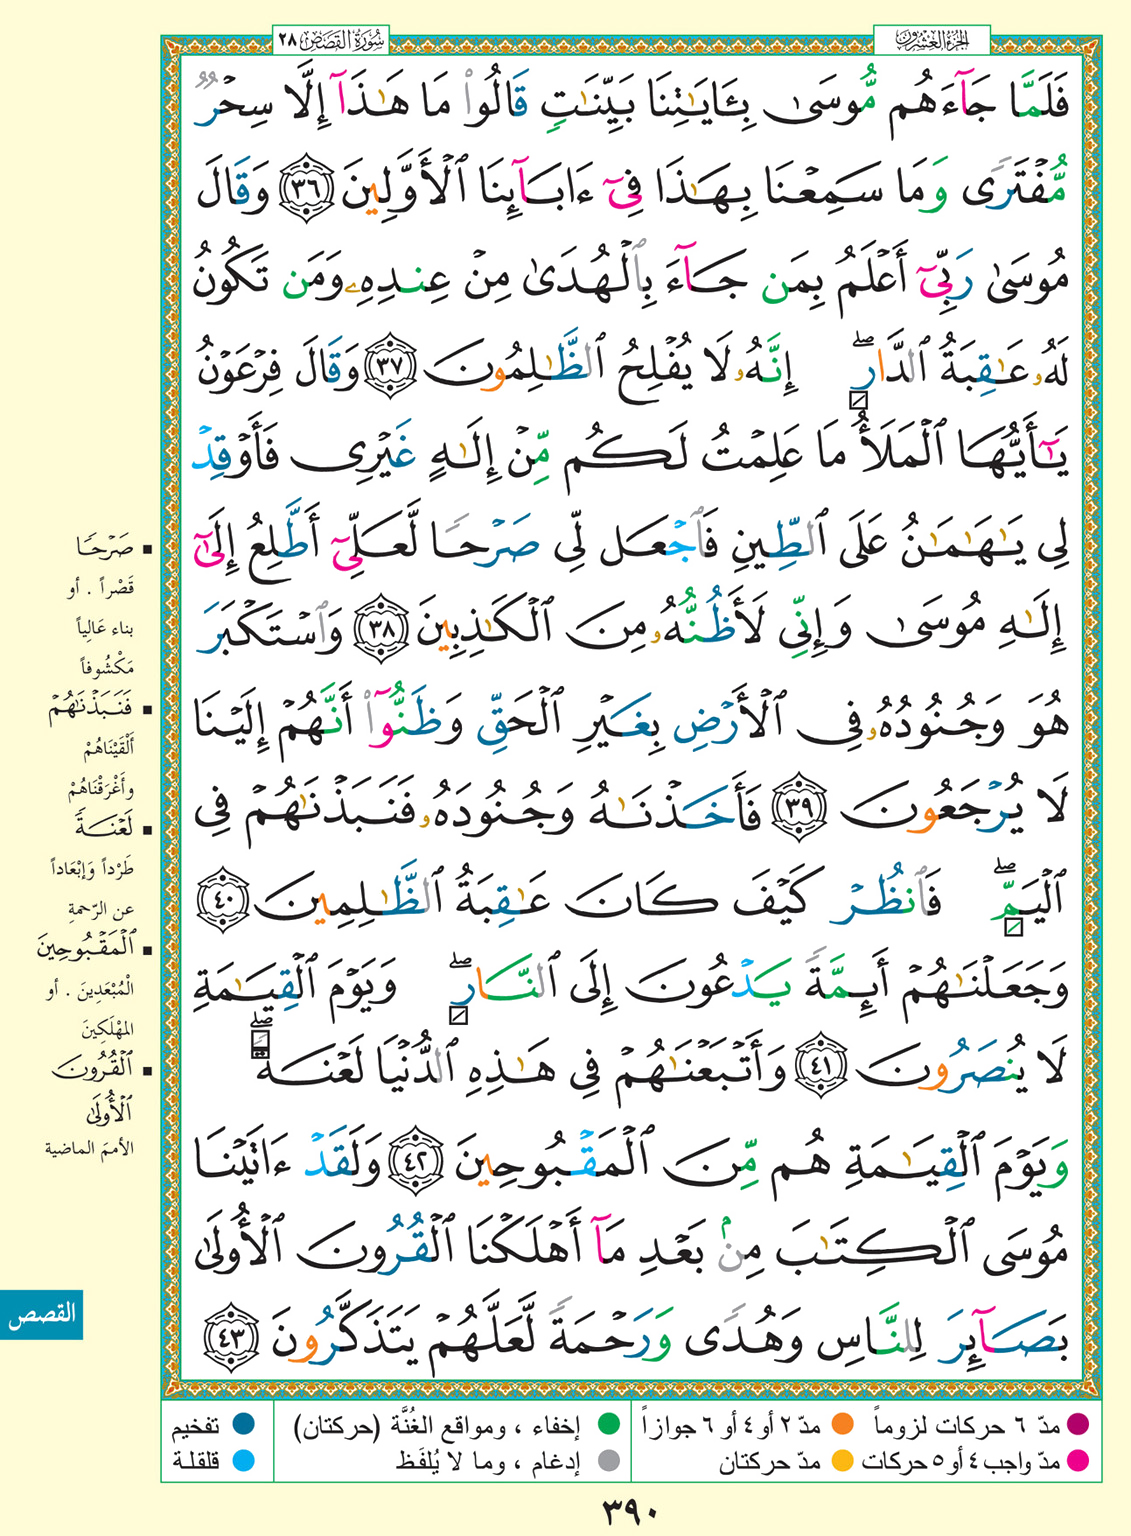 الجزء العشرون
سورة القصص ٢٨
فَلَمَّا جَآءَهُم مُّوسَىٰ بِـَٔايَـٰتِنَا بَيِّنَـٰتٍ قَالُوا۟ مَا هَـٰذَآ إِلَّا سِحْرٌ
مُّفْتَرًى وَمَا سَمِعْنَا بِهَـٰذَا فِىٓ ءَابَآئِنَا ٱلْأَوَّلِينَ ٣٦ وَقَالَ
مُوسَىٰ رَبِّىٓ أَعْلَمُ بِمَن جَآءَ بِٱلْهُدَىٰ مِنْ عِندِهِۦ وَمَن تَكُونُ
لَهُۥ عَـٰقِبَةُ ٱلدَّارِ ۖ إِنَّهُۥ لَا يُفْلِحُ ٱلظَّـٰلِمُونَ ٣٧ وَقَالَ فِرْعَوْنُ
يَـٰٓأَيُّهَا ٱلْمَلَأُ مَا عَلِمْتُ لَكُم مِّنْ إِلَـٰهٍ غَيْرِى فَأَوْقِدْ
لِى يَـٰهَـٰمَـٰنُ عَلَى ٱلطِّينِ فَٱجْعَل لِّى صَرْحًا لَّعَلِّىٓ أَطَّلِعُ إِلَىٰٓ
إِلَـٰهِ مُوسَىٰ وَإِنِّى لَأَظُنُّهُۥ مِنَ ٱلْكَـٰذِبِينَ ٣٨ وَٱسْتَكْبَرَ
هُوَ وَجُنُودُهُۥ فِى ٱلْأَرْضِ بِغَيْرِ ٱلْحَقِّ وَظَنُّوٓا۟ أَنَّهُمْ إِلَيْنَا
لَا يُرْجَعُونَ ٣٩ فَأَخَذْنَـٰهُ وَجُنُودَهُۥ فَنَبَذْنَـٰهُمْ فِى
ٱلْيَمِّ ۖ فَٱنظُرْ كَيْفَ كَانَ عَـٰقِبَةُ ٱلظَّـٰلِمِينَ ٤٠
وَجَعَلْنَـٰهُمْ أَئِمَّةً يَدْعُونَ إِلَى ٱلنَّارِ ۖ وَيَوْمَ ٱلْقِيَـٰمَةِ
لَا يُنصَرُونَ ٤١ وَأَتْبَعْنَـٰهُمْ فِى هَـٰذِهِ ٱلدُّنْيَا لَعْنَةً ۖ
وَيَوْمَ ٱلْقِيَـٰمَةِ هُم مِّنَ ٱلْمَقْبُوحِينَ ٤٢ وَلَقَدْ ءَاتَيْنَا
مُوسَى ٱلْكِتَـٰبَ مِنۢ بَعْدِ مَآ أَهْلَكْنَا ٱلْقُرُونَ ٱلْأُولَىٰ
بَصَآئِرَ لِلنَّاسِ وَهُدًى وَرَحْمَةً لَّعَلَّهُمْ يَتَذَكَّرُونَ ٤٣
▪ صَرْحًا
قَصْراً . أو
بناء عَالِياً
مَكْشُوفاً
▪ فَنَبَذْنَـٰهُمْ
أَلْقَيْنَاهُمْ
وأَغْرَقْنَاهُمْ
▪ لَعْنَةً
طَرْداً وَإبْعَاداً
عن الرّحمةِ
▪ ٱلْمَقْبُوحِينَ
الْمُبْعَدِينَ . أو
المهْلَكِينَ
▪ ٱلْقُرُونَ
ٱلْأُولَىٰ
الأممَ الماضية
القصص
مدّ ٦ حركات لزوماً
مدّ ٢ أو ٤ أو ٦ جوازاً
إخفاء ، ومواقع الغُنَّة (حركتان)
تفخيم
مدّ واجب ٤ أو ٥ حركات
مدّ حركتان
إدغام ، وما لا يُلفَظ
قلقلة
٣٩٠